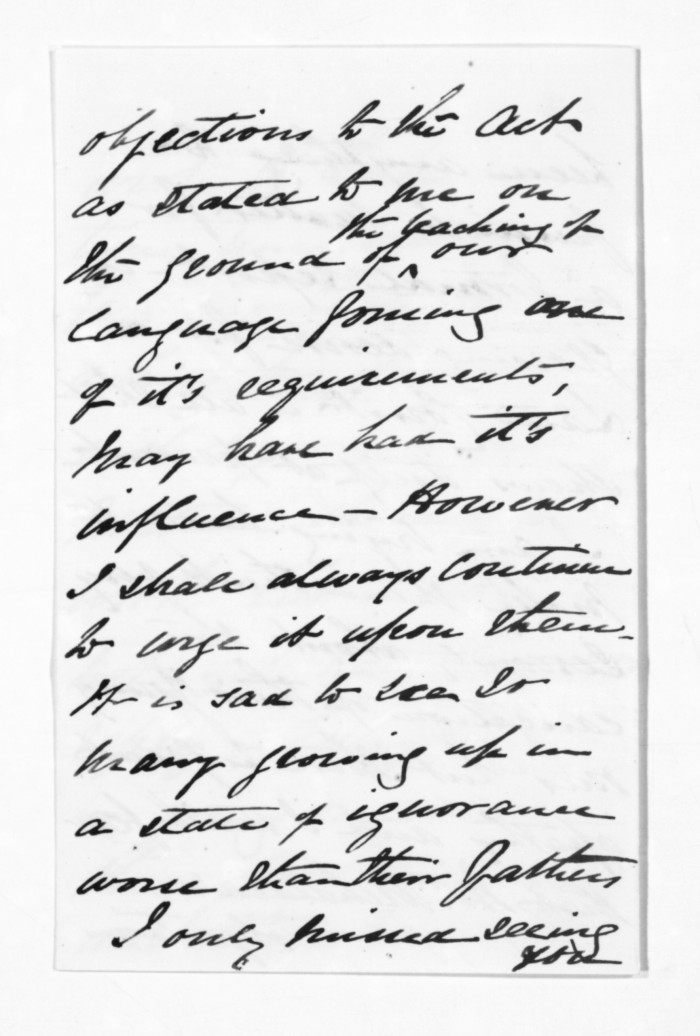 objections to the Act
as stated to me on
the teaching of
the ground of ^ our
language forming one
of it's requirements,
may have had it's
influence – However
I shall always continue
to urge it upon them.
It is sad to see so
many growing up in
a state of ignorance
worse than their fathers
I only missed seeing
you